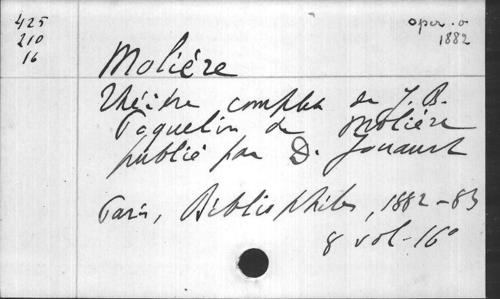 425
210
16
oper. o
1882
Molière
Théâtre complet de J. B.
Poquelin de Molière
publié par D. Jouaust
Paris, Bibliophiles, 1882-83
8 vol-16°